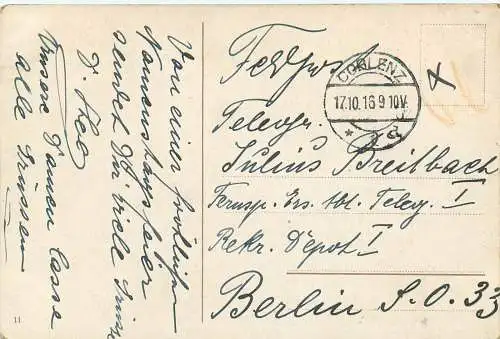 Von einer fröhlichen
Namenstagsfeier
sendet Dir viele Grüsse
D. Theo
Unsere Damen lasse
alle Grüssen
11
Feldpost
COBLENZ
17.10.16 9-10V.
* d
X
Telegr.
Julius Breitbach
Fernsp. Ers. Abt. Teleg. I
Rekr. Depot I
Berlin S.O. 33